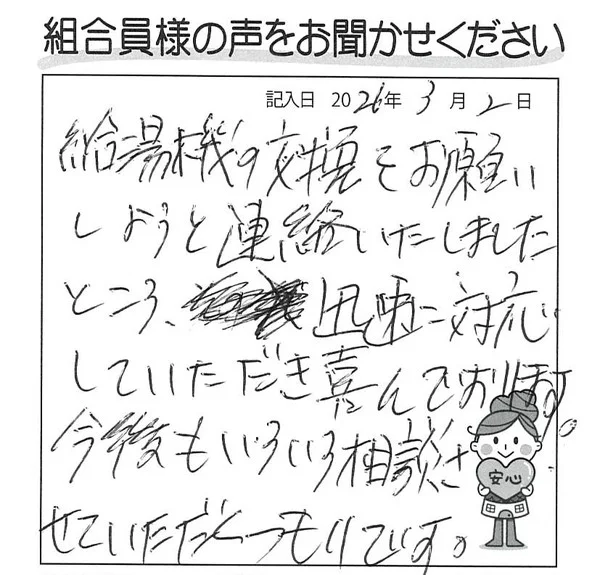 組合員様の声をお聞かせください
記入日 2026年 3月 2日
給湯機の交換をお願い
しようと連絡いたしました
ところ、迅速に対応
していただき喜んでおります。
今後もいろいろ相談さ
せていただくつもりです。
安心